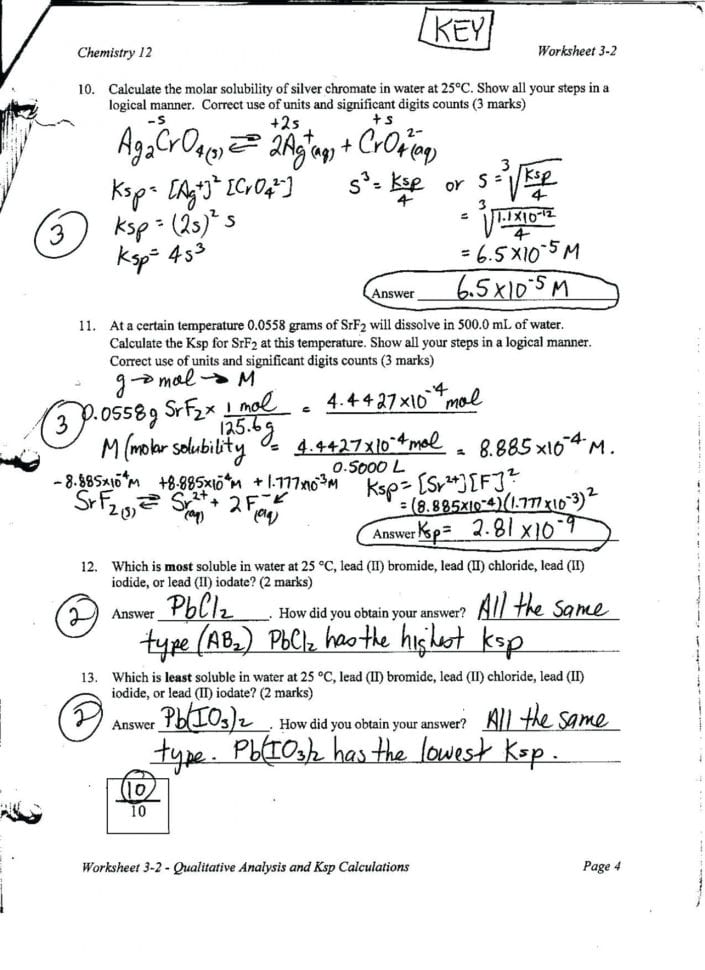 KEY
Chemistry 12
Worksheet 3-2
10. Calculate the molar solubility of silver chromate in water at 25°C. Show all your steps in a
logical manner. Correct use of units and significant digits counts (3 marks)
-s +2s +s
Ag₂CrO₄(s) ⇌ 2Ag⁺(aq) + CrO₄²⁻(aq)
Ksp = [Ag⁺]² [CrO₄²⁻] s³ = Ksp/4 or s = ³√(Ksp/4)
3
Ksp = (2s)² s = ³√(1.1x10⁻¹²/4)
Ksp = 4s³ = 6.5 x10⁻⁵ M
Answer 6.5x10⁻⁵ M
11. At a certain temperature 0.0558 grams of SrF₂ will dissolve in 500.0 mL of water.
Calculate the Ksp for SrF₂ at this temperature. Show all your steps in a logical manner.
Correct use of units and significant digits counts (3 marks)
g → mol → M
3 0.0558g SrF₂ x 1 mol/125.6g = 4.4427x10⁻⁴ mol
M (molar solubility = 4.4427x10⁻⁴ mol/0.5000 L = 8.885 x10⁻⁴ M.
-8.885x10⁻⁴M +8.885x10⁻⁴M +1.777x10⁻³M Ksp = [Sr²⁺][F⁻]²
SrF₂(s) ⇌ Sr²⁺(aq) + 2F⁻(aq) = (8.885x10⁻⁴)(1.777x10⁻³)²
Answer Ksp = 2.81 x10⁻⁹
12. Which is most soluble in water at 25 °C, lead (II) bromide, lead (II) chloride, lead (II)
iodide, or lead (II) iodate? (2 marks)
2
Answer PbCl₂. How did you obtain your answer? All the same
type (AB₂) PbCl₂ has the highest Ksp
13. Which is least soluble in water at 25 °C, lead (II) bromide, lead (II) chloride, lead (II)
iodide, or lead (II) iodate? (2 marks)
2
Answer Pb(IO₃)₂. How did you obtain your answer? All the same
type. Pb(IO₃)₂ has the lowest Ksp.
10
10
Worksheet 3-2 - Qualitative Analysis and Ksp Calculations
Page 4